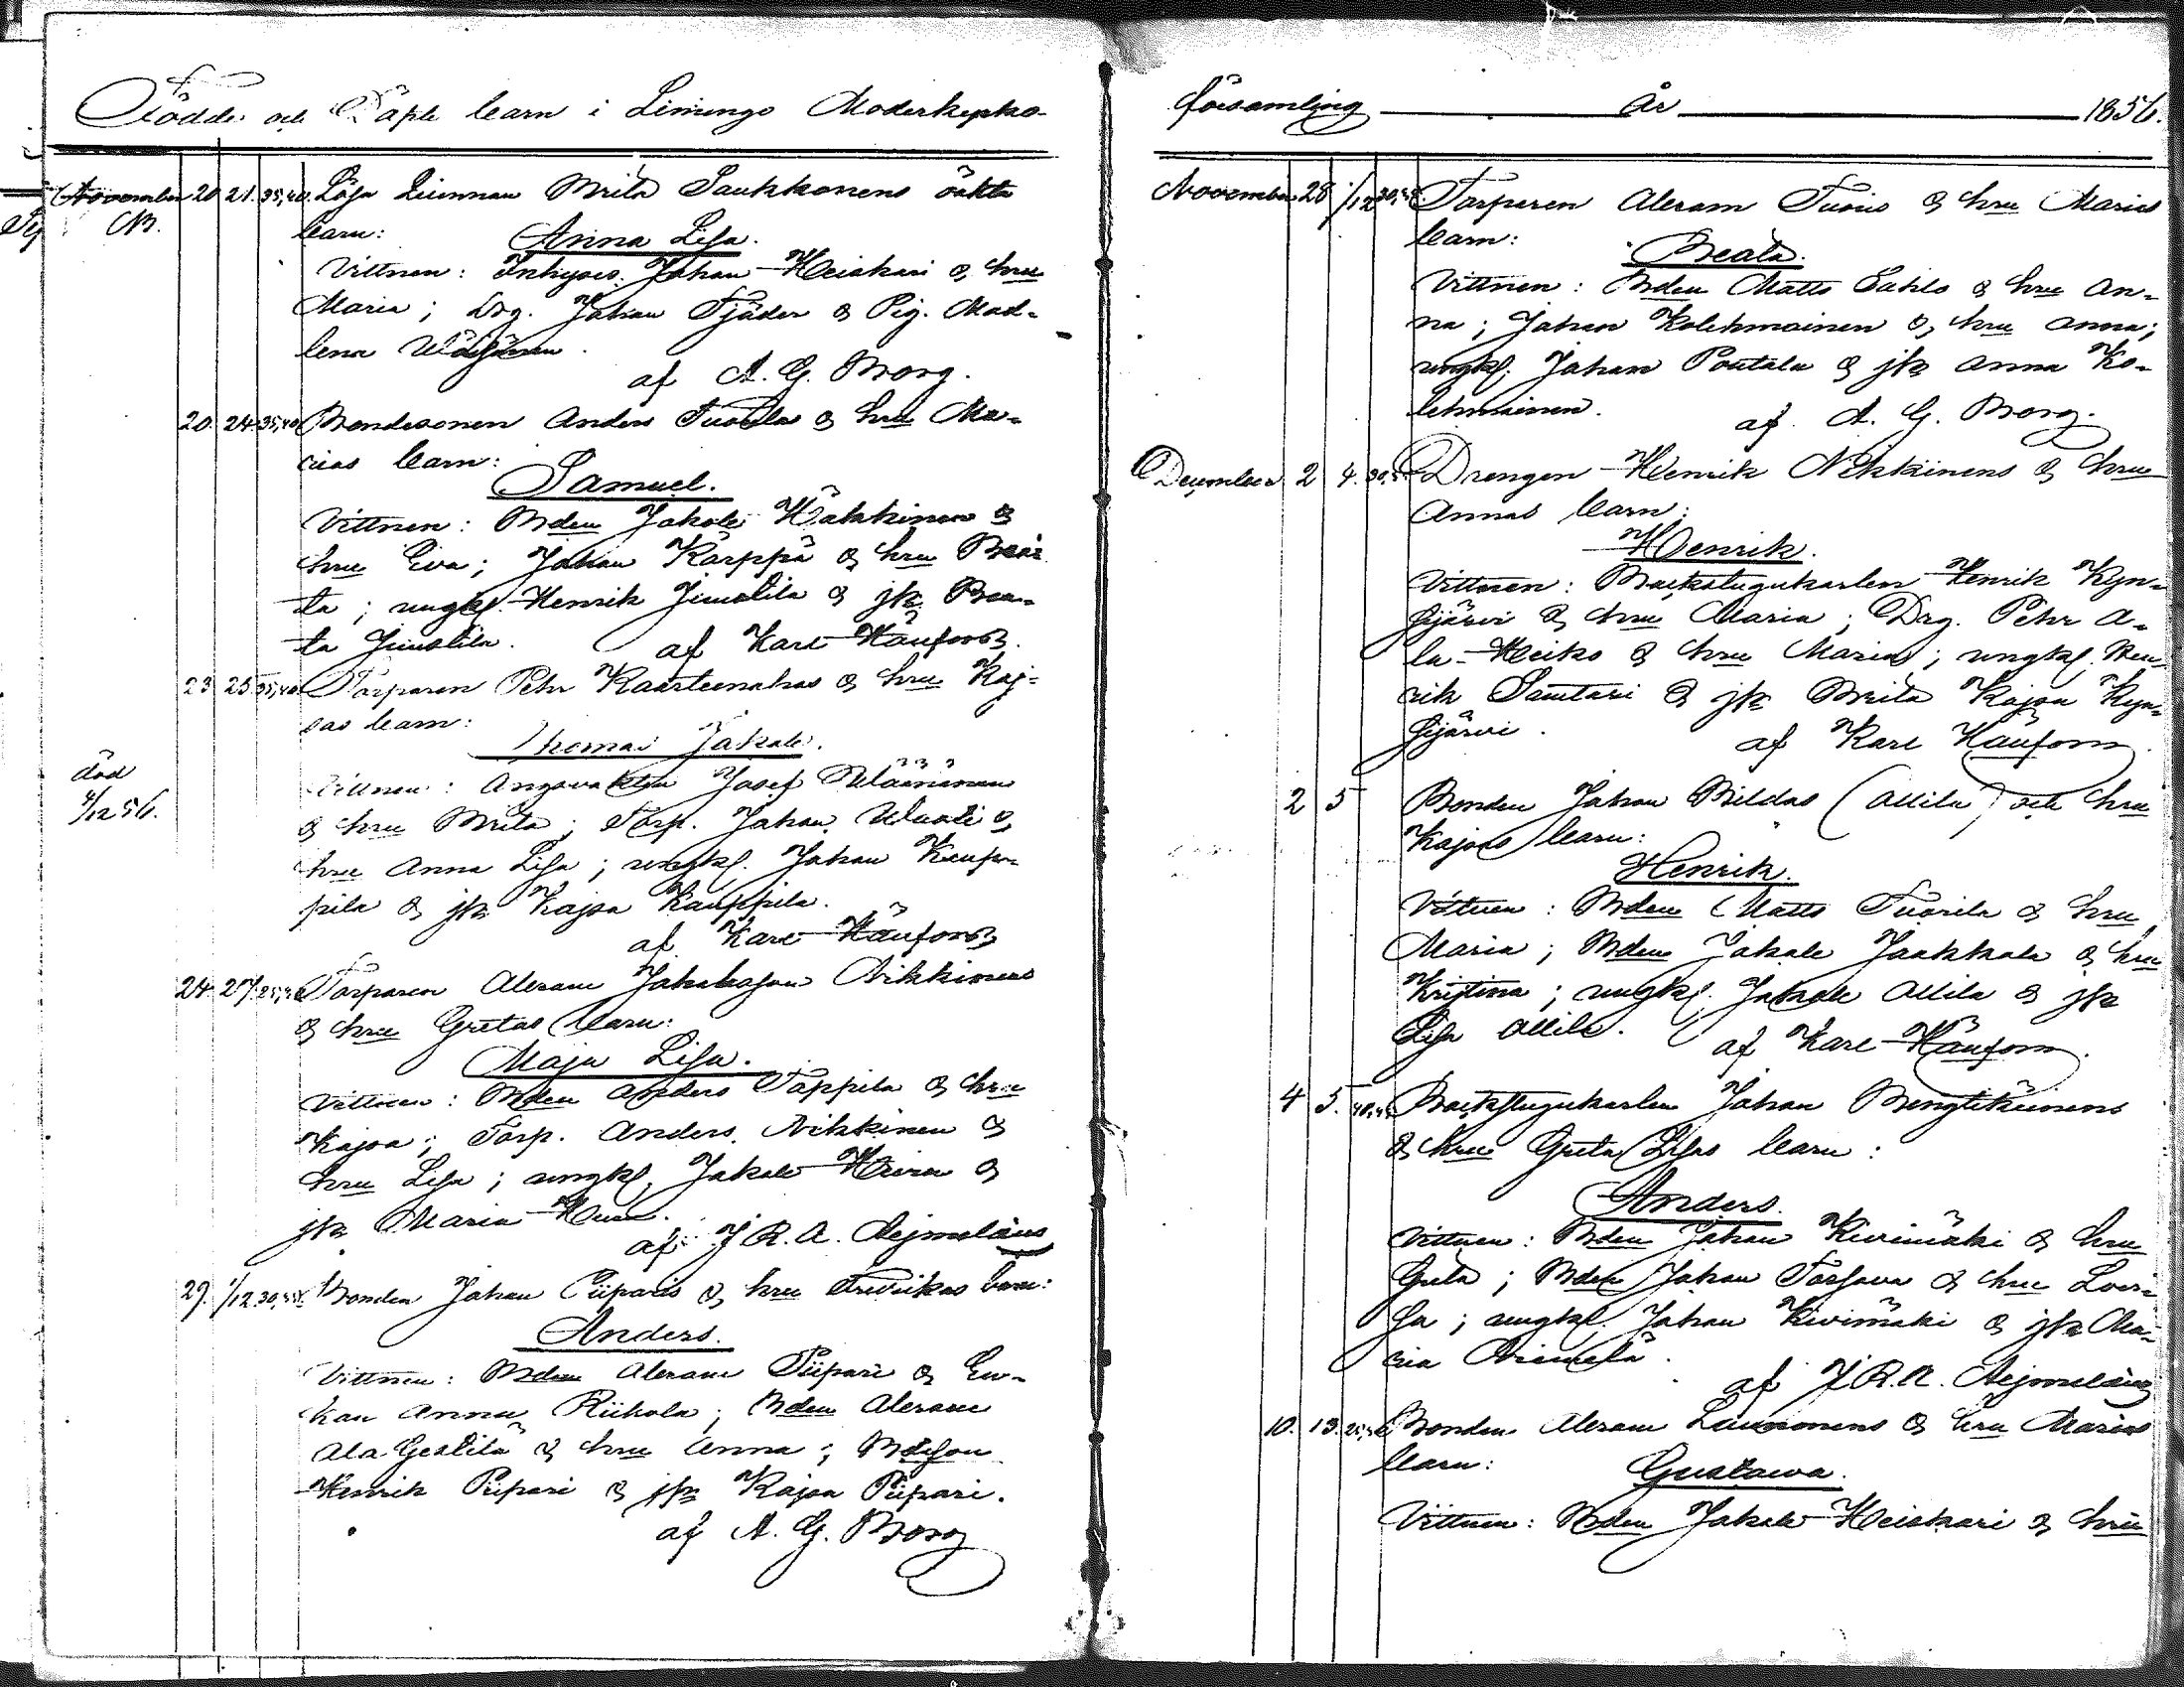 Födde och Döpte barn i Limingo Moderkyrko-
November 20 21. 35,40. Lösa Qvinnan Brita Saukkonens oäkta
barn: Anna Lisa.
Vittnen: Inhyses Johan Heiskari & hru
Maria; Drg. Johan Fjäder & Pig. Mad-
lena
af A. G. Borg.
20. 24. 35,40 Bondesonen Anders Tuorila & hru Ma-
rias barn:
Samuel.
Vittnen: Bden Jakob Häkkinen &
hru Eva; Johan Kärppä & hru Bri-
ta; ungkl. Henrik Juustila & jfr Brea-
ta Juustila. af Karl Hänfors.
23 25. 35,40. Torparen Pehr Kaarteenahos & hru Kaj-
sas barn:
Thomas Jakob.
död
4/12 56.
Vittnen: Josef Määttänen
& hru Brita; Torp. Johan &
hru Anna Lisa; ungkl. Johan Kaup-
pila & jfr Kajsa Kauppila.
af Karl Hänfors
24. 27. Torparen Abram Jakobsson Nikkinens
& hru Gretas barn:
Maja Lisa.
Vittnen: Bden Anders Tappila & hru
Kajsa; Torp. Anders Nikkinen &
hru Lisa; ungkl. Jakob &
jfr Maria
af J. R. A. Aejmelæus
29. 1/12. Bonden Johan Piiparis & hru Fredrikas barn:
Anders.
Vittnen: Bden Abram Piipari & En-
kan Anna Riihola; Bden Abram
Ala Gestilä & hru Anna; Bdeson
Henrik Piipari & jfr Kajsa Piipari.
af A. G. Borg
församling År 1856.
November 28 1/12 Torparen Abram Tuovis & hru Marias
barn: Beata.
Vittnen: Bden Matts & hru An-
na; Johan Kolehmainen & hru Anna;
ungkl. Johan Poutala & jfr Anna Ko-
lehmainen. af A. G. Borg.
December 2 4. Drengen Henrik Nikkinens & hru
Annas barn:
Henrik.
Vittnen: Backstugukarlen Henrik Kyn-
sijärvi & hru Maria; Drg. Pehr A-
la-Heiko & hru Maria; ungkl. Hen-
rik & jfr Brita Kajsa Kyn-
sijärvi. af Karl Hänfors.
2 5 Bonden Johan Pildas (Attila) och hru
Kajsas barn:
Henrik.
Vittnen: Bden Matts Tuorila & hru
Maria; Bden Jakob Jaakkola & hru
Kristina; ungkl. Jakob Attila & jfr
Lisa Attila. af Karl Hänfors.
4 5. Backstugukarlen Johan Mengtkinens
& hru Greta Lisas barn:
Anders.
Vittnen: Bden Johan Kivimäki & hru
Greta; Bden Johan & hru Lovi-
sa; ungkl. Johan Kivimäki & jfr Ma-
ria Niemelä.
af J. R. A. Aejmelæus
10. 13. Bonden Abram Luomonens & hru Marias
barn: Gustawa.
Vittnen: Bden Jakob Heiskari & hru